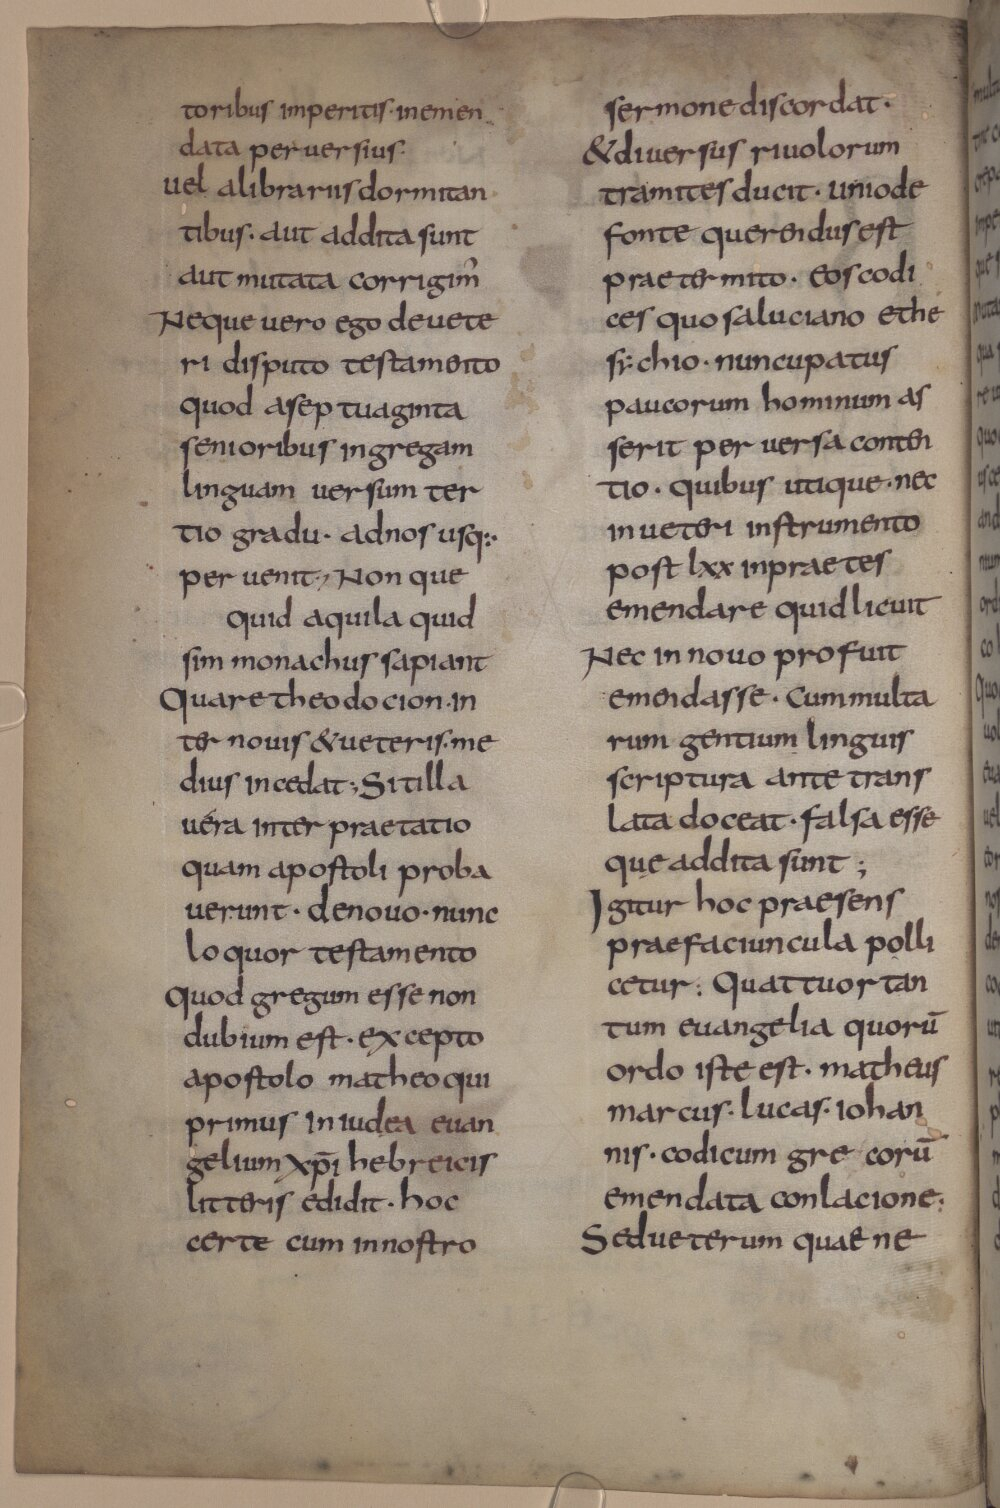 toribus imperitis· inemen
data peruersius·
uel alibrariis dormitan
tibus· aut addita sunt
aut mutata corrigim̃
Neque uero ego de uete
ri disputo testamento
quod aseptuaginta
senioribus ingregam
linguam uersum ter
tio gradu· adnos usq:·
peruenit; Non que
quid aquila quid
simmonachus sapiant
Quare theodocion· in
ter nouis & ueteris· me
dius incedat; Sit illa
uéra interpraetatio
quam apostoli proba
uerunt· denouo· nunc
loquor testamento
Quod gregum esse non
dubium est· excepto
apostolo matheo qui
primus in iudea euan
gelium xp̄i hebreicis
litteris edidit· hoc
certe cum innostro
sermone discordat·
& diuersus riuolorum
tramites ducit· uniode
fonte querendus est
praetermito· Eos codi
ces quos aluciano ethe
sy:chio· nuncupatus
paucorum hominum as
serit peruersa conten
tio· quibus utique· nec
in ueteri instrumento
post lxx inpraetes
emendare quid licuit
Nec in nouo profuit
emendasse· Cum multa
rum gentium linguis
scriptura ante trans
lata doceat· falsa esse
que addita sunt;
Igitur hoc praesens
praefaciuncula polli
cetur: Quattuor tan
tum euangelia quorū
ordo iste est· matheus
marcus· lucas· iohan
nis· codicum gre corū
emendata conlacione:
Sed ueterum quae ne